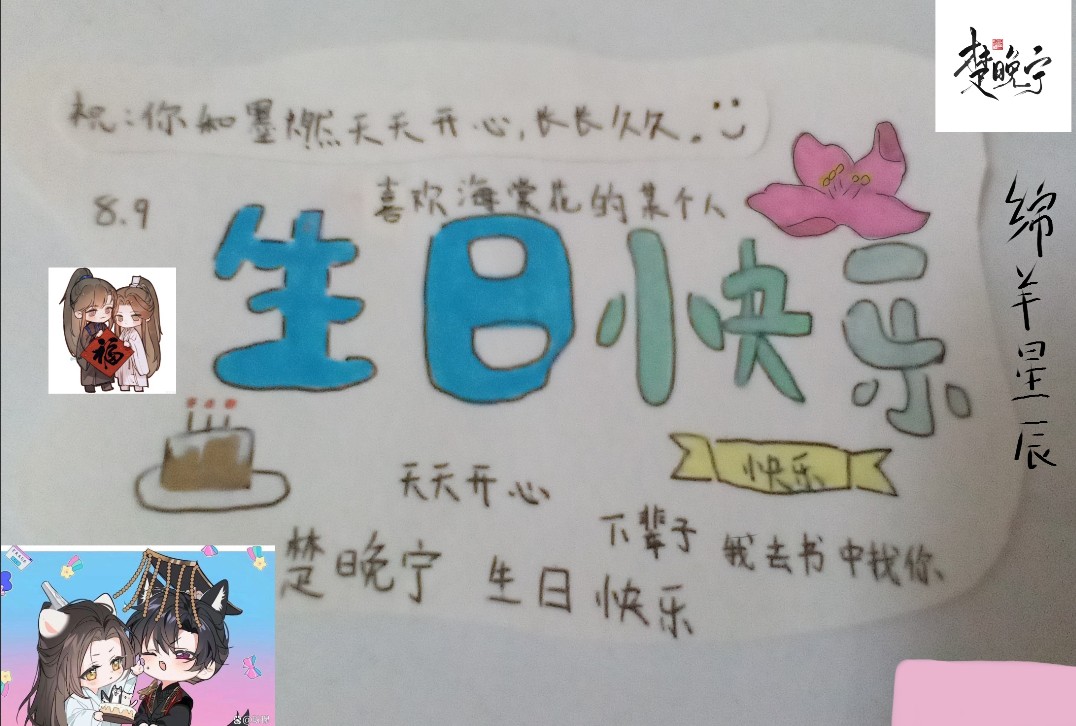 楚晚宁
祝:你和墨燃天天开心,长长久久。
8.9
喜欢海棠花的某个人
生日快乐
绵羊星辰
福
快乐
天天开心
下辈子我去书中找你、
楚晚宁 生日快乐